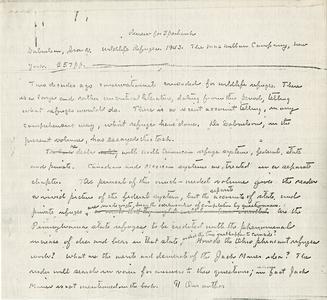 Review for Bird-Banks
Gabrielson, Ira N. Wildlife Refuges. 1943. The Macmillan Company, New
York. 257 pp.
Two decades ago conservationists crusaded for wildlife refuges. There
is a large and rather uncritical literature, dating from this period, telling
what refuges would do. There is no recent account telling, in any
comprehensive way, what refuges have done. Dr. Gabrielson, in the
present volume, has essayed this task.
deals with North American refuge systems, federal, state
and private. Canadian and Mexican systems are treated in a separate
chapter. The present of this much-needed volume gives the reader
a vivid picture of the federal system, but the accounts of state, and
private refuges
Are the
Pennsylvania state refuges to be credited with the phenomenal
increase of deer and bear in that state, How do the Ohio pheasant refuges
work? What are the merits and demerits of the Jack Miner idea? The
reader will search in vain for answers to these questions; in fact Jack
Miner is not mentioned in the book.